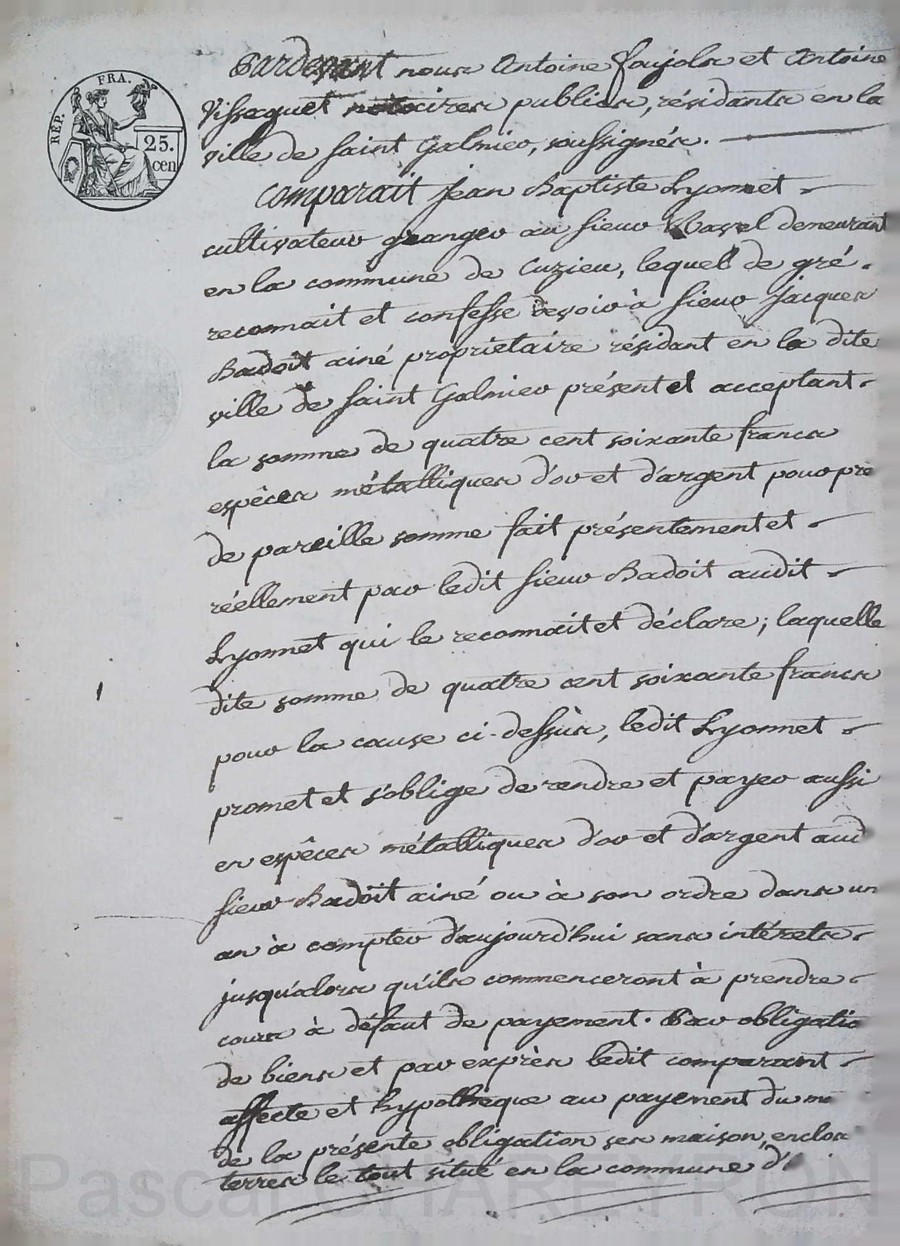 RÉP. FRA.
25.
cen
Pardevant nous Antoine Faujols et Antoine
Vissaguet notaires publics, résidants en la
ville de Saint Galmier, soussignés.
Comparait Jean Baptiste Lyonnet
cultivateur granger au sieur Ravel demeurant
en la commune de Cuzieu, lequel de gré
reconnait et confesse devoir à sieur Jacques
Badoit ainé proprietaire résidant en la dite
ville de Saint Galmier présent et acceptant
la somme de quatre cent soixante francs
espêces métalliques d'or et d'argent pour
de pareille somme fait présentement et
réellement par ledit sieur Badoit audit
Lyonnet qui le reconnait et déclare; laquelle
dite somme de quatre cent soixante francs
pour la cause ci-dessùs, ledit Lyonnet
promet et s'oblige de rendre et payer aussi
en espêces métalliques d'or et d'argent aud
sieur Badoit ainé ou à son ordre dans un
an à compter d'aujourd'hui sans intérets
jusqu'alors qu'ils commenceront à prendre
cours à défaut de payement. Par obligatio
de biens et par exprès ledit comparant
affecte et hypotheque au payement du
de la présente obligation ses maison, enclos
terres le tout situé en la commune d'
Pascal CHAREYRON